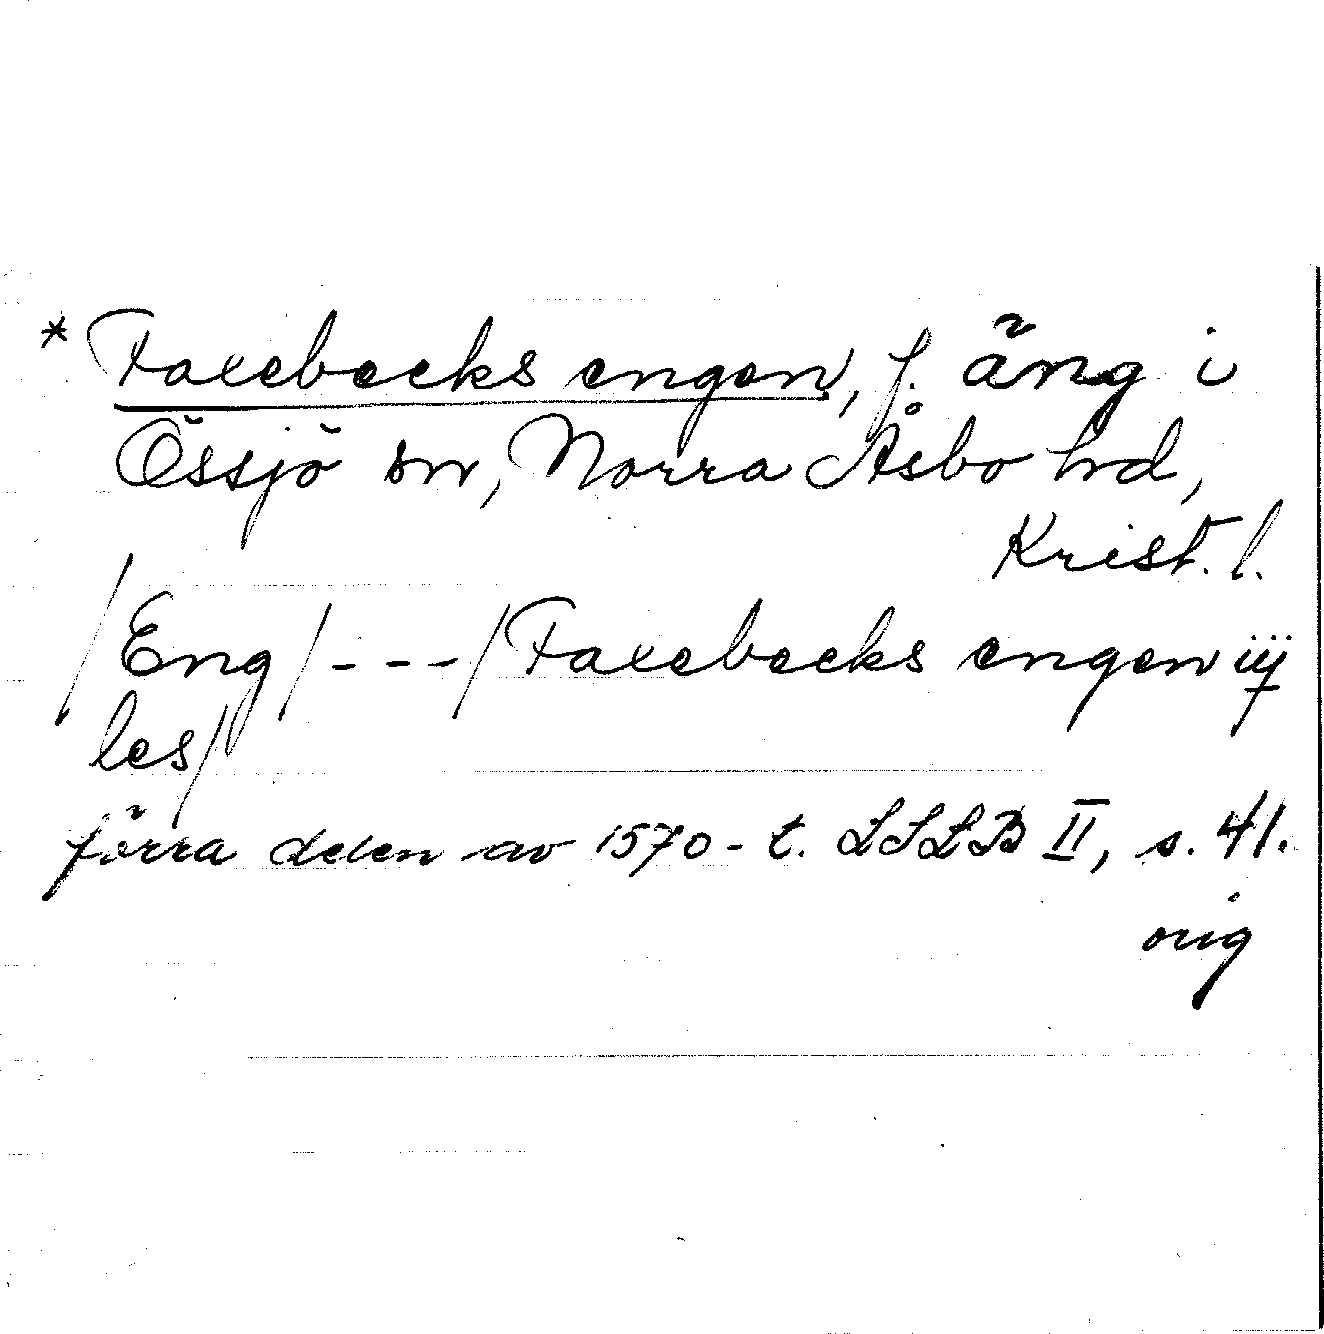 * Faxebecks engen, f. äng i
Össjö sn, Norra Åsbo hd,
Krist. l.
/Eng/---/Faxebecks engen iij
les/
förra delen av 1570-t. LSLB II, s. 41.
orig